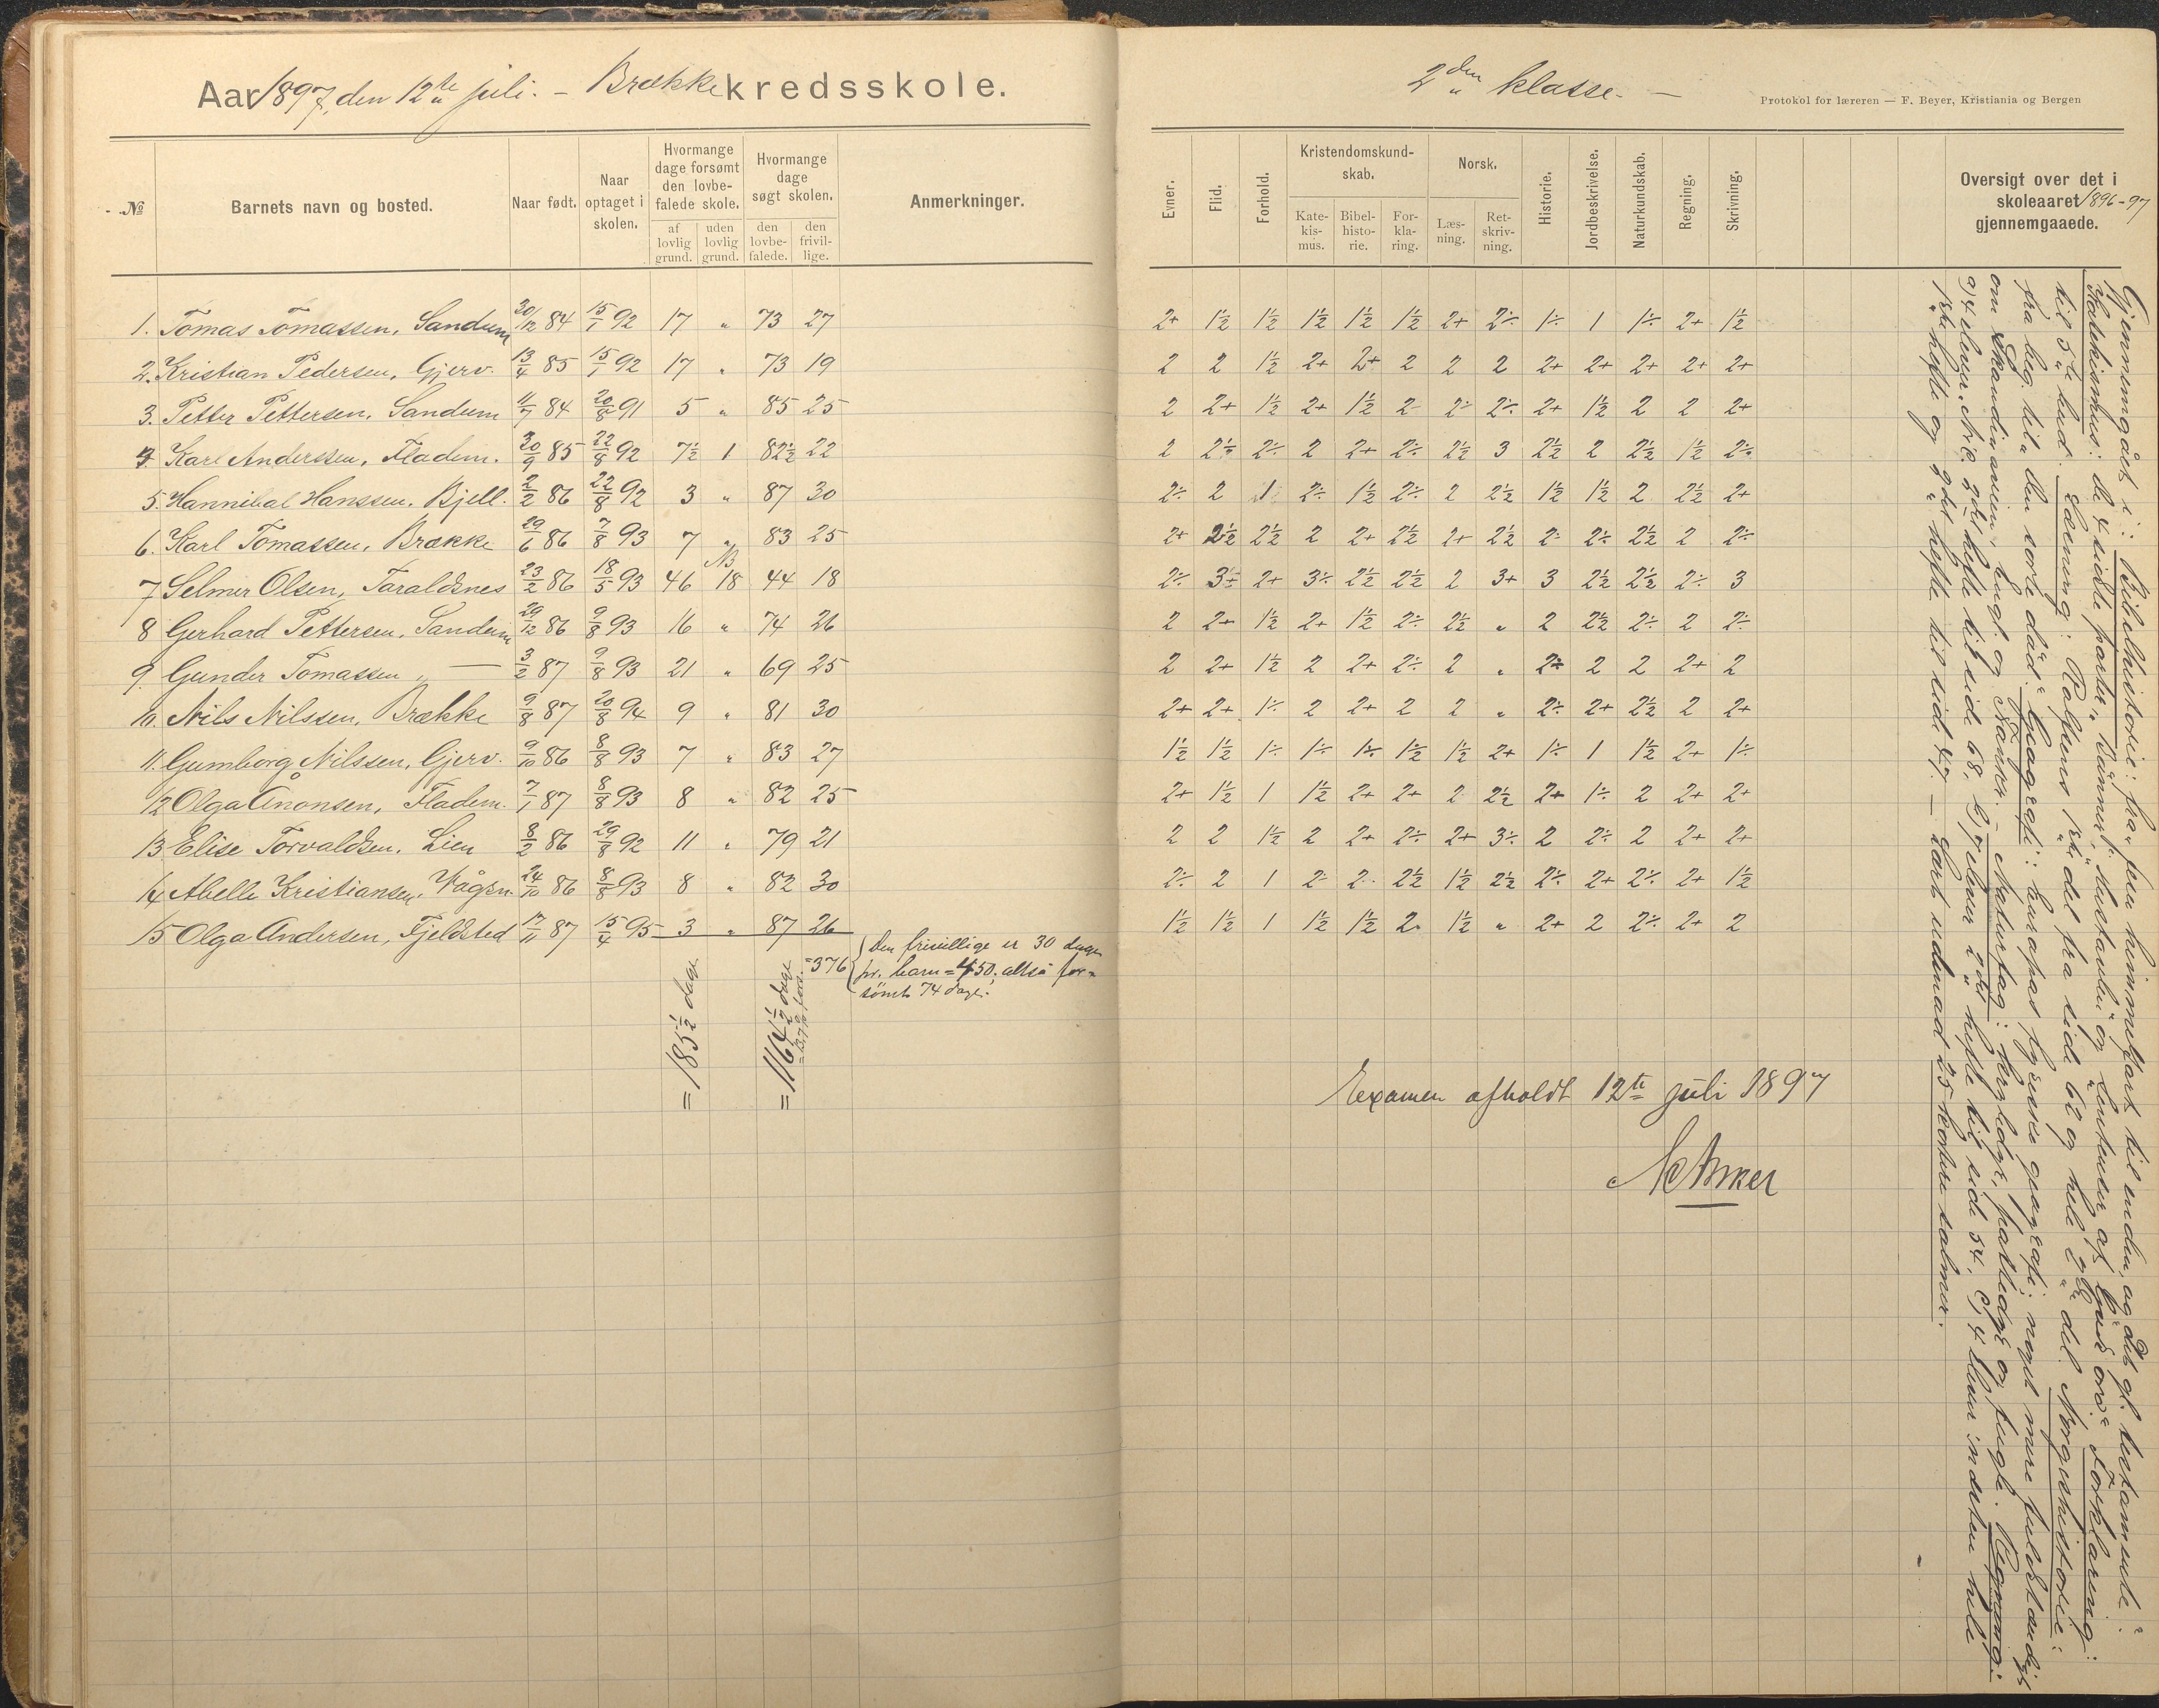 Aar 1897, den 12te juli. – Brække kredsskole.
№ Barnets navn og bosted. Naar født. Naar optaget i skolen. Hvormange dage forsømt den lovbefalede skole. af lovlig grund. uden lovlig grund. Hvormange dage søgt skolen. den lovbefalede. den frivillige. Anmerkninger.
1. Tomas Tomassen, Sandum 30/12 84 15/1 92 17 " 73 27
2. Kristian Pedersen, Gjerv. 13/4 85 15/1 92 17 " 73 19
3. Petter Pettersen, Sandum 11/7 84 20/8 91 5 " 85 25
4. Karl Anderssen, Fladem. 30/9 85 22/8 92 7½ 1 82½ 22
5. Hannibal Hanssen, Bjell. 2/2 86 22/8 92 3 " 87 30
6. Karl Tomassen, Brække 29/6 86 7/8 93 7 " 83 25
NB
7 Selmer Olsen, Taraldsnes 23/2 86 18/5 93 46 18 44 18
8 Gerhard Pettersen, Sandum 29/12 86 9/8 93 16 " 74 26
9. Gunder Tomassen " — 3/2 87 9/8 93 21 " 69 25
10. Nils Nilssen, Brække 9/8 87 20/8 94 9 " 81 30
11. Gumborg Nilssen, Gjerv. 9/10 86 8/8 93 7 " 83 27
12 Olga Ånonsen, Fladem. 7/1 87 8/8 93 8 " 82 25
13 Elise Torvaldsen, Lien 8/2 86 29/8 92 11 " 79 21
14 Abelle Kristiansen, Vågsn. 24/10 86 8/8 93 8 " 82 30
15 Olga Andersen, Fjeldsted 17/11 87 15/4 95 3 " 87 26
= 185½ dage
= 1164½ dage
= 376
Den frivillige er 30 dage
pr. barn = 450; altså for=
sömt 74 dage.
2den klasse. —
Protokol for læreren — F. Beyer, Kristiania og Bergen
Evner. Flid. Forhold. Kristendomskundskab. Katekismus. Bibelhistorie. Forklaring. Norsk. Læsning. Retskrivning. Historie. Jordbeskrivelse. Naturkundskab. Regning. Skrivning. Oversigt over det i skoleaaret 1896-97 gjennemgaaede.
2+ 1½ 1½ 1½ 1½ 1½ 2+ 2÷ 1÷ 1 1÷ 2+ 1½
2 2 1½ 2+ 2+ 2 2 2 2+ 2+ 2+ 2+ 2+
2 2+ 1½ 2+ 1½ 2- 2÷ 2÷ 2+ 1½ 2 2 2+
2 2½ 2÷ 2 2+ 2÷ 2½ 3 2½ 2 2½ 1½ 2÷
2÷ 2 1 2÷ 1½ 2÷ 2 2½ 1½ 1½ 2 2½ 2+
2+ 2½ 2½ 2 2+ 2½ 2+ 2½ 2÷ 2÷ 2½ 2 2÷
2÷ 3÷ 2+ 3÷ 2½ 2½ 2 3+ 3 2½ 2½ 2÷ 3
2 2+ 1½ 2+ 1½ 2÷ 2½ " 2 2½ 2÷ 2 2÷
2 2+ 1½ 2 2+ 2÷ 2 " 2÷ 2 2 2+ 2
2+ 2+ 1÷ 2 2+ 2 2 " 2÷ 2+ 2½ 2 2+
1½ 1½ 1÷ 1÷ 1÷ 1½ 1½ 2+ 1÷ 1 1½ 2+ 1÷
2+ 1½ 1 1½ 2+ 2+ 2 2½ 2+ 1÷ 2 2+ 2+
2 2 1½ 2 2+ 2÷ 2+ 3÷ 2 2÷ 2 2+ 2+
2÷ 2 1 2÷ 2÷ 2½ 1½ 2½ 2÷ 2+ 2÷ 2+ 1½
1½ 1½ 1 1½ 1½ 2÷ 1½ " 2+ 2 2÷ 2+ 2
Examen afholdt 12te juli 1897
Gjennemgått i: Bibelhistorie: fra "fru himmelfart til enden, og det gl. testamente".
Katekismus: de 4 sidste parter. "Dåpen," og "Guds ord." Forklaring:
til 5te bud. Læsning: Rolfsens 1ste del fra side 62 og hele 2den del. Norgeshistorie:
fra beg. til "den sorte död." Geografi: Europas begreves geografi; noget mere fuldstændigt
om Skandinavien, Engl. og Danm. – Naturfag: krybdyr, padder og fugle. Regning:
a) 4 elever: Nic. 9de hefte til side 68, b) 7 elever 2det hefte til side 54, c) 4 elever: endelen hele
1ste hefte og 2det hefte til side 47. – Lært udenad 25 korte salmer.